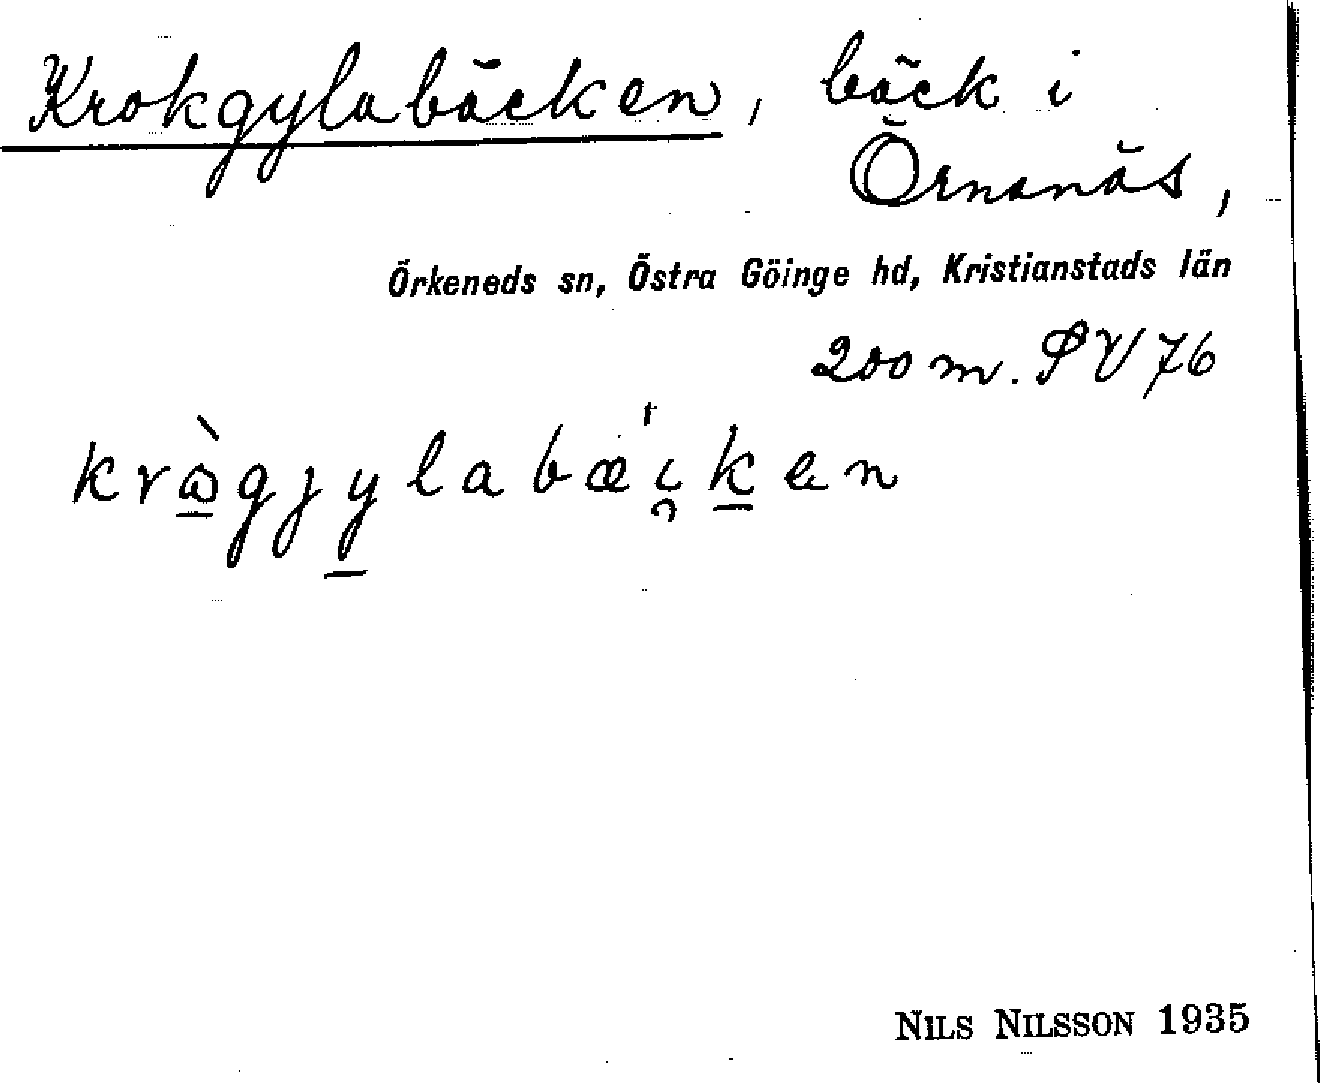 Krokgylabäcken, bäck i
Örnanäs,
Örkeneds sn, Östra Göinge hd, Kristianstads län
200 m. SV 76
krògjylabæ'i̯ken
NILS NILSSON 1935